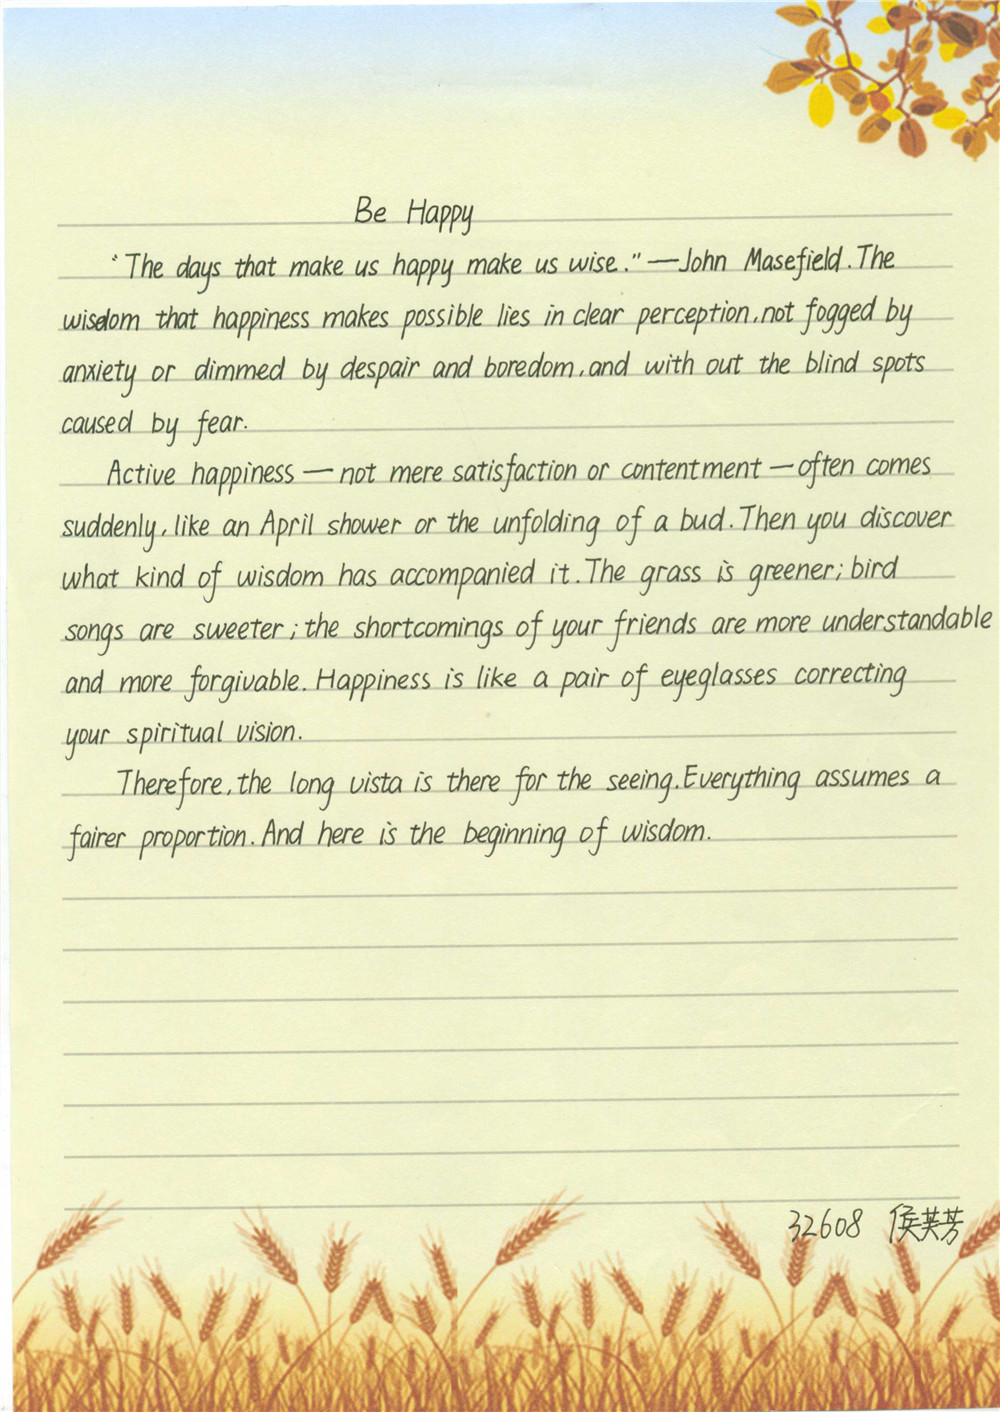 Be Happy
"The days that make us happy make us wise."—John Masefield.The
wisdom that happiness makes possible lies in clear perception,not fogged by
anxiety or dimmed by despair and boredom,and with out the blind spots
caused by fear.
Active happiness—not mere satisfaction or contentment—often comes
suddenly,like an April shower or the unfolding of a bud.Then you discover
what kind of wisdom has accompanied it.The grass is greener;bird
songs are sweeter;the shortcomings of your friends are more understandable
and more forgivable.Happiness is like a pair of eyeglasses correcting
your spiritual vision.
Therefore,the long vista is there for the seeing.Everything assumes a
fairer proportion.And here is the beginning of wisdom.
32608 侯芙芳